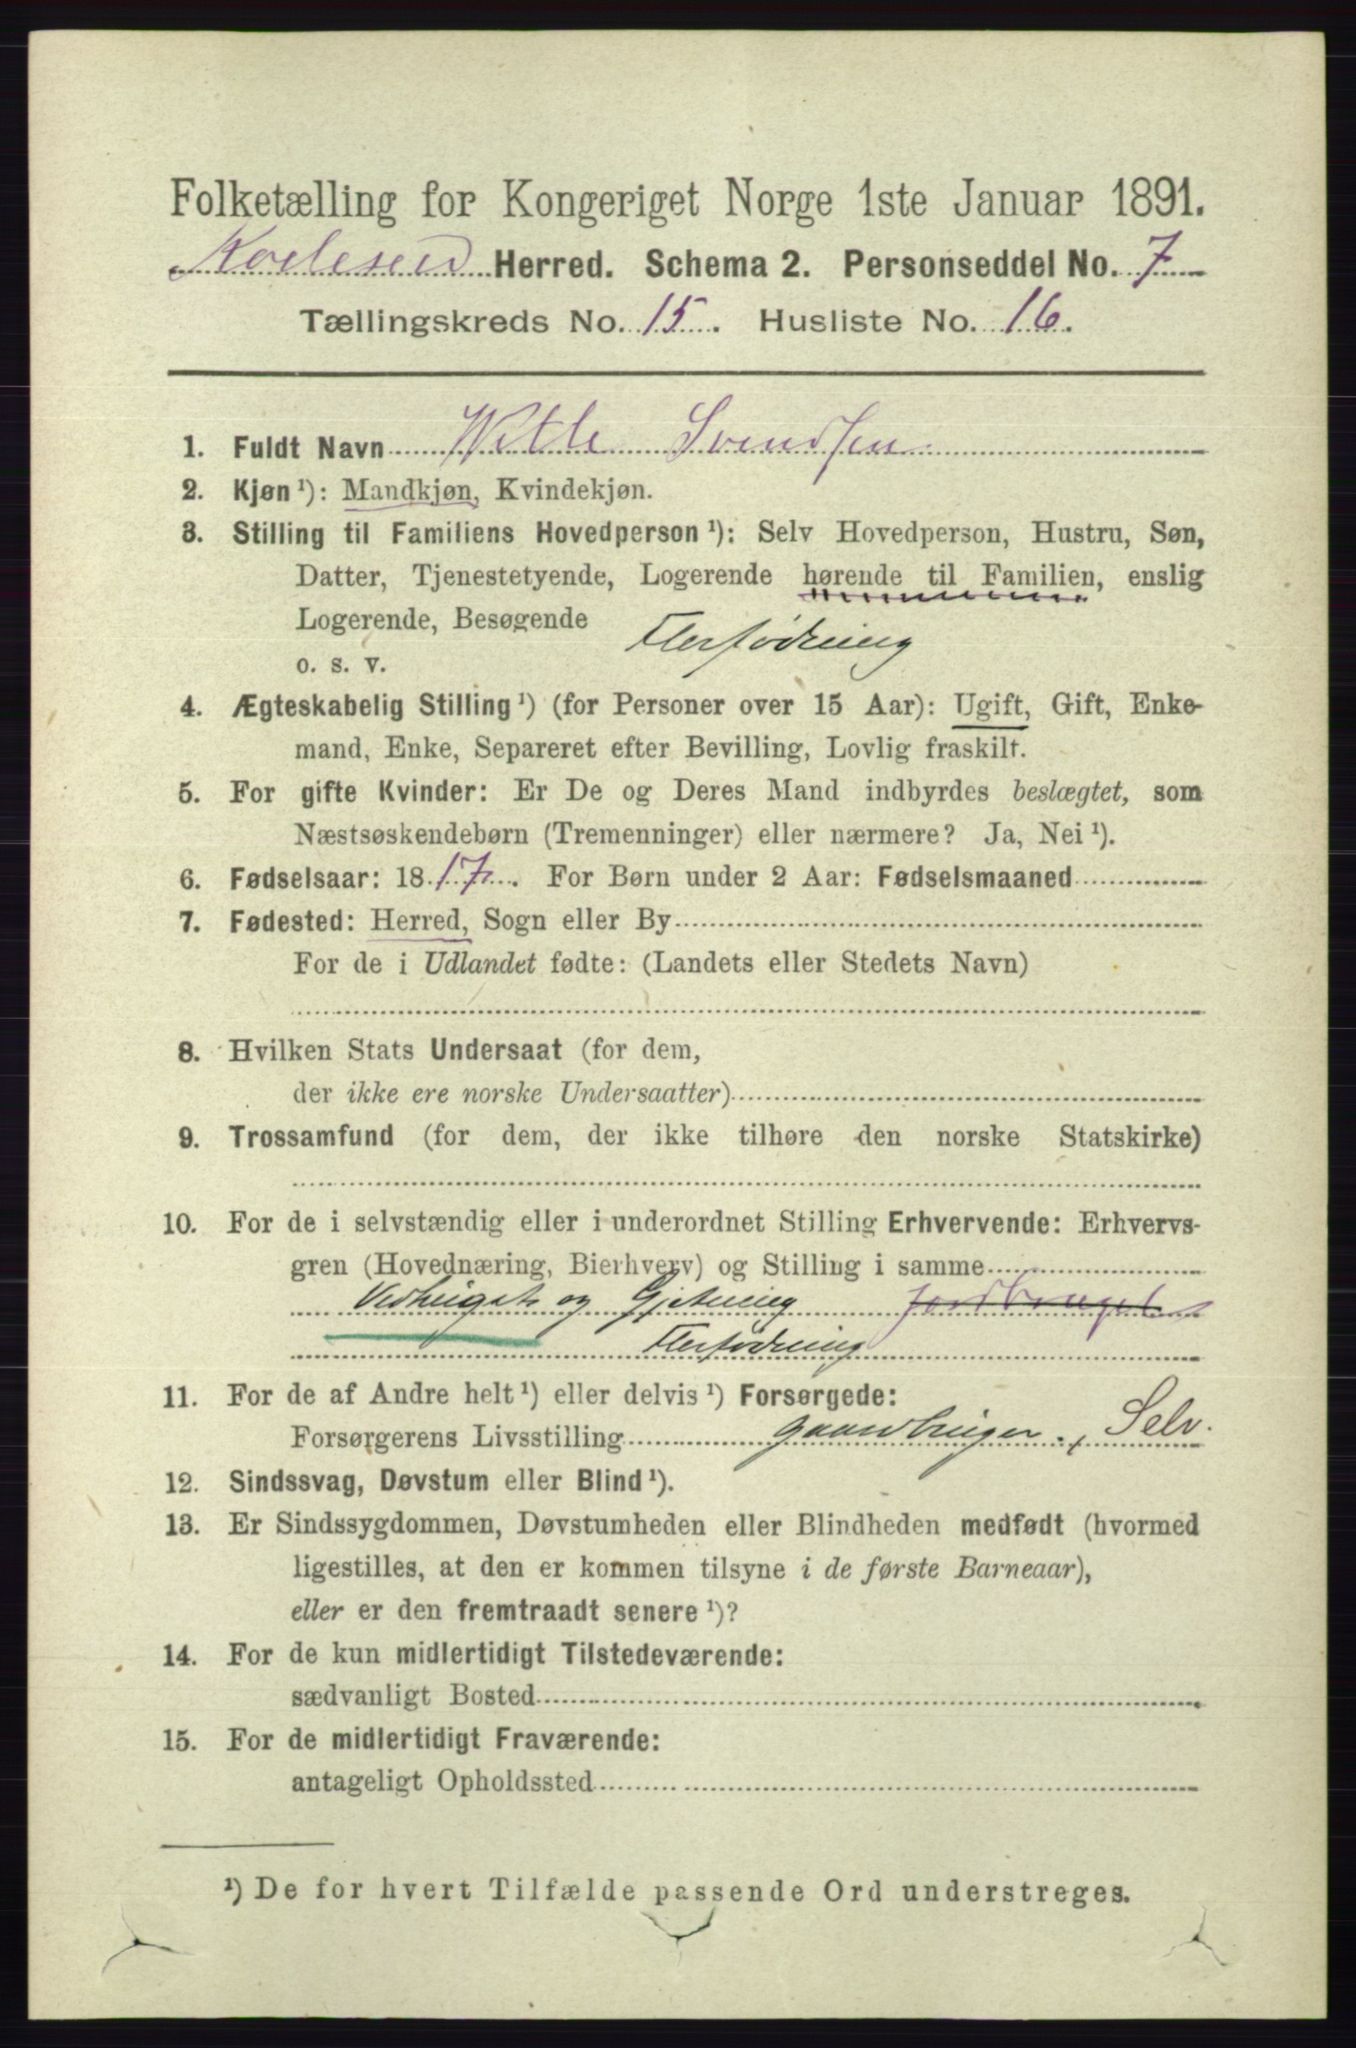 Folketælling for Kongeriget Norge 1ste Januar 1891.
Kvelseid Herred. Schema 2. Personseddel No. 7
Tællingskreds No. 15. Husliste No. 16.
1. Fuldt Navn Vetle Svendsen
2. Kjøn ¹): Mandkjøn, Kvindekjøn.
3. Stilling til Familiens Hovedperson ¹): Selv Hovedperson, Hustru, Søn,
Datter, Tjenestetyende, Logerende hørende til Familien, enslig
Logerende, Besøgende
o. s. v.
4. Ægteskabelig Stilling ¹) (for Personer over 15 Aar): Ugift, Gift, Enke-
mand, Enke, Separeret efter Bevilling, Lovlig fraskilt.
5. For gifte Kvinder: Er De og Deres Mand indbyrdes beslægtet, som
Næstsøskendebørn (Tremenninger) eller nærmere? Ja, Nei ¹).
6. Fødselsaar: 1817. For Børn under 2 Aar: Fødselsmaaned
7. Fødested: Herred, Sogn eller By
For de i Udlandet fødte: (Landets eller Stedets Navn)
8. Hvilken Stats Undersaat (for dem,
der ikke ere norske Undersaatter)
9. Trossamfund (for dem, der ikke tilhøre den norske Statskirke)
10. For de i selvstændig eller i underordnet Stilling Erhvervende: Erhvervs-
gren (Hovednæring, Bierhverv) og Stilling i samme
Vedhugst og Gjetning
11. For de af Andre helt ¹) eller delvis ¹) Forsørgede:
Forsørgerens Livsstilling gaardbruger, Selv.
12. Sindssvag, Døvstum eller Blind ¹).
13. Er Sindssygdommen, Døvstumheden eller Blindheden medfødt (hvormed
ligestilles, at den er kommen tilsyne i de første Barneaar),
eller er den fremtraadt senere ¹)?
14. For de kun midlertidigt Tilstedeværende:
sædvanligt Bosted
15. For de midlertidigt Fraværende:
antageligt Opholdssted
¹) De for hvert Tilfælde passende Ord understreges.